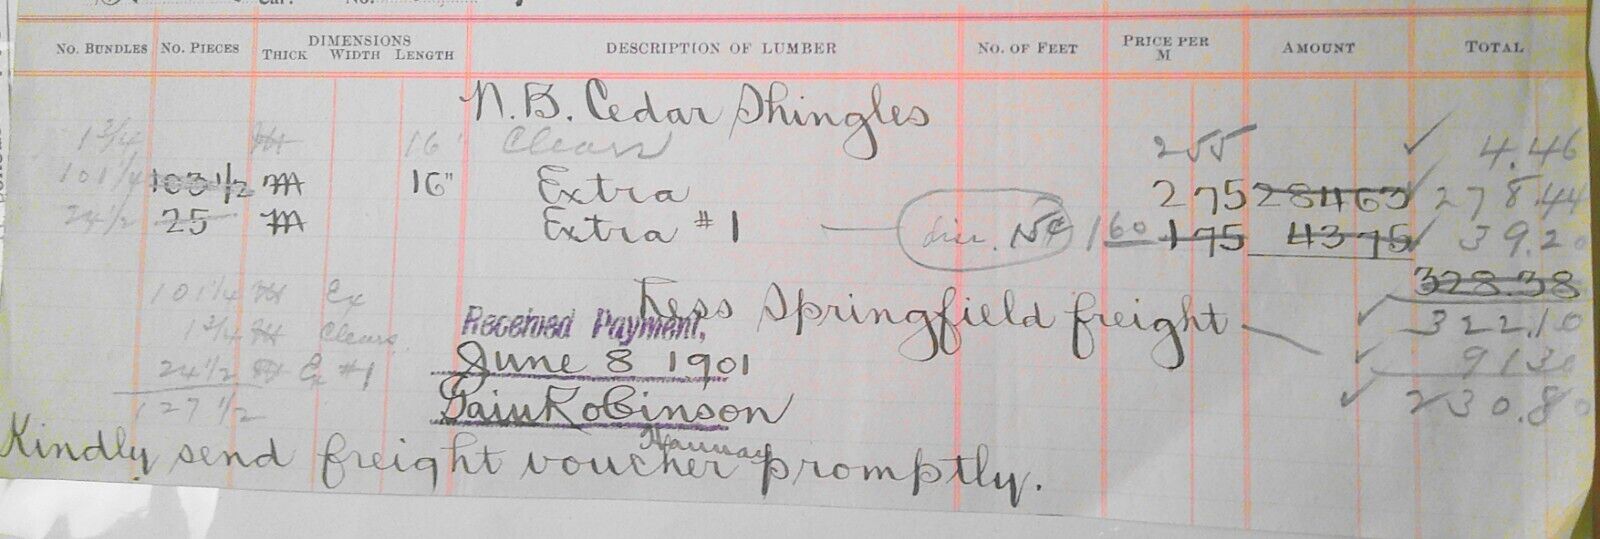 NO. BUNDLES NO. PIECES DIMENSIONS THICK WIDTH LENGTH DESCRIPTION OF LUMBER NO. OF FEET PRICE PER M AMOUNT TOTAL
N. B. Cedar Shingles
1 3/4 M 16" Clears 255 4.46
101 1/4 103 1/2 M 16" Extra 275 28463 278.44
24 1/2 25 M Extra #1 dis. 15¢ 160 175 4375 39.20
328.38
101 1/4 M Ex Less Springfield freight 322.10
1 3/4 M Clears Received Payment,
24 1/2 M Ex #1 June 8 1901 91.30
127 1/2 Robinson 230.80
Kindly send freight voucher promptly.